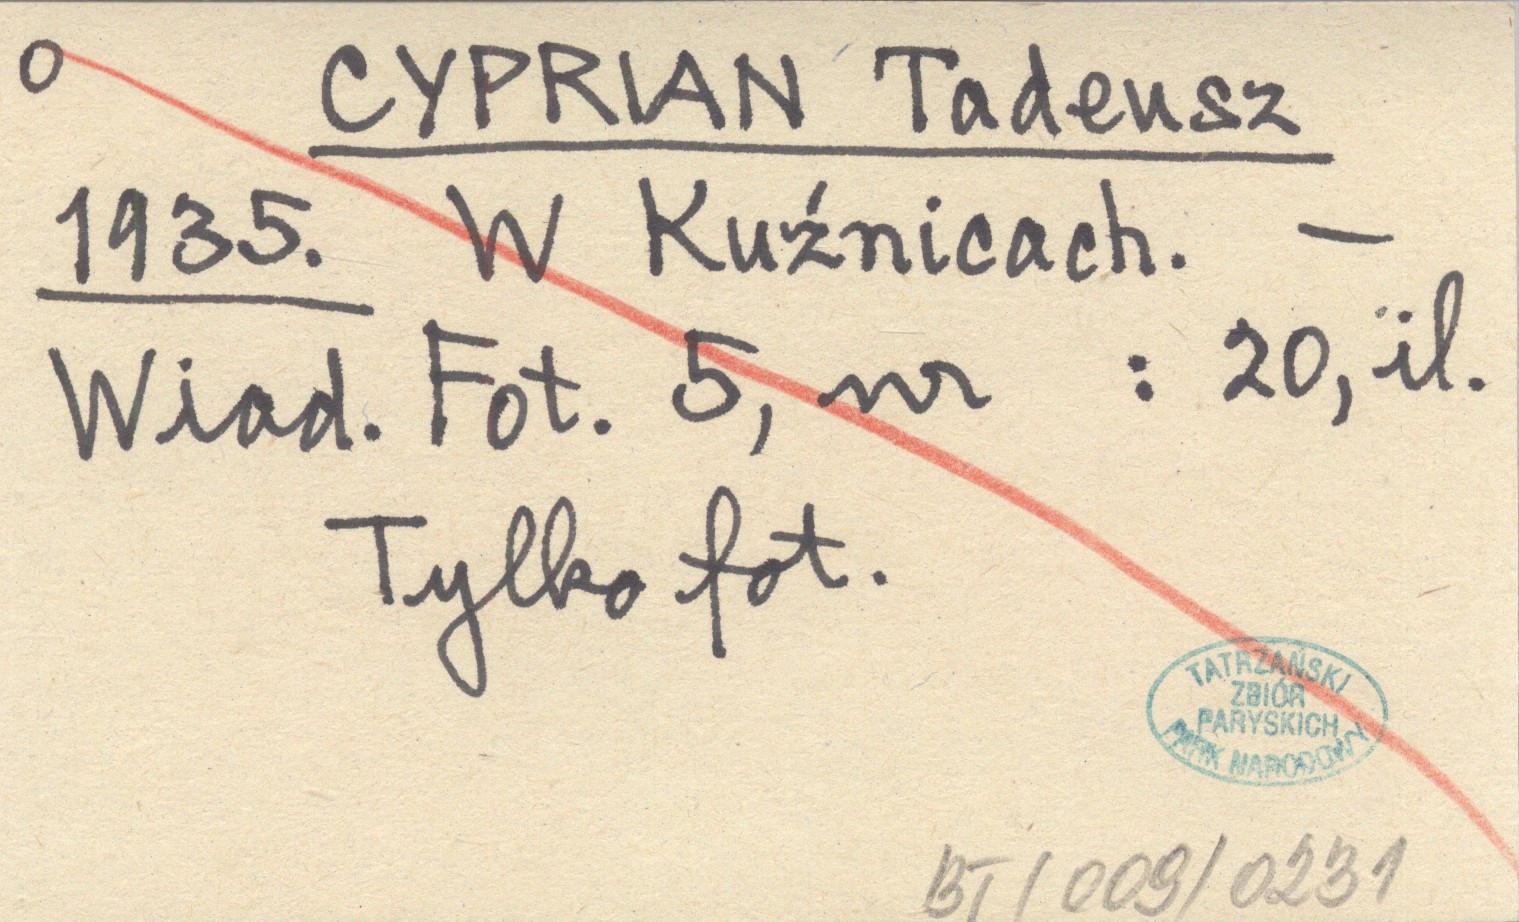 O CYPRIAN Tadeusz
1935. W Kuźnicach. —
Wiad. Fot. 5, nr : 20, il.
Tylko fot.
TATRZAŃSKI
ZBIÓR
PARYSKICH
PARK NARODOWY
BT/009/0231